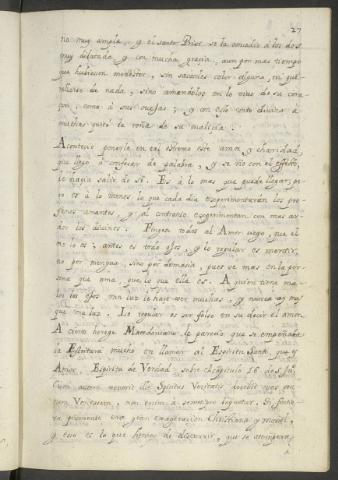 27
tio muy amplia, y el santo Prior se la concedio a los dos
muy dilatada y con mucha gracia, aun por mas tiempo
que hubiera menester, sin sacarles color alguno, ni que
de nada, sino amandolos en lo vivo de su cora
zon, como a sus ovejas; y con esto
muchas la roña de su malicia.
Acontecio ponerse en tal estremo este amor y charidad,
que llego a de palabra, y se vio con el effecto,
le hacia salir de si. Es a lo mas que puede llegar, pe
ro es a lo menos lo que cada dia esperimentaran los pro
fanos amantes y al contrario esperimentan con mas ar
dor los divinos. Fingen todos al Amor ciego, que el
no lo es; antes es todo ojos, y lo regular es
no por mengua, sino por demasia, pues ve mas en la per
sona que ama, que lo que ella es. A quien tiene ma
los los ojos una luz le hace ver muchas, y nunca ay mas
que una luz. Lo regular es ser falso en su decir el amor.
A cierto herege Macedoniano le parecia que se empeñaba
la Escritura mucho en llamar al Espiritu Santo, que es
Amor, Espiritu de Verdad sobre el capitulo 16 de S. Juan
Cum autem venerit ille Spiritus Veritatis docebit vos om
nem Veritatem, non enim a semetipso loquetur.
una gran exageracion Christiana y
y esto es lo que de discurrir, que se